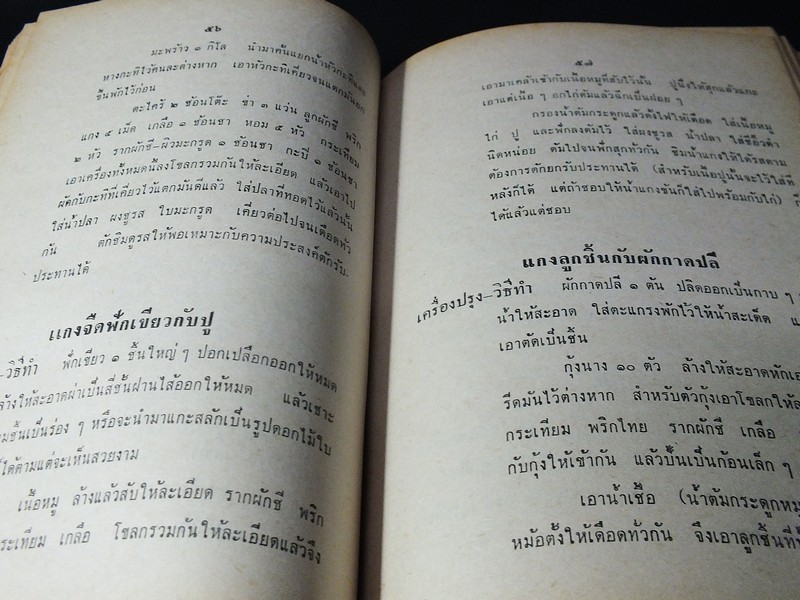 ๕๖
มะพร้าว ๑ กิโล นำมาคั้นแยกน้ำหัวกะทิและ
หางกะทิไว้คนละต่างหาก เอาหัวกะทิเคี่ยวจนแตกมันยก
ขึ้นพักไว้ก่อน
ตะไคร้ ๒ ช้อนโต๊ะ ข่า ๓ แว่น ลูกผักชี พริก
แกง ๕ เม็ด เกลือ ๑ ช้อนชา หอม ๕ หัว กระเทียม
๒ หัว รากผักชี-ผิวมะกรูด ๑ ช้อนชา กะปิ ๑ ช้อนชา
เอาเครื่องทั้งหมดนี้ลงโขลกรวมกันให้ละเอียด แล้วเอาไป
ผัดกับกะทิที่เคี่ยวไว้แตกมันดีแล้ว ใส่ปลาที่ทอดไว้แล้วนั้น
ใส่น้ำปลา ผงชูรส ใบมะกรูด เคี่ยวต่อไปจนเดือดทั่ว
กัน ตักชิมดูรสให้พอเหมาะกับความประสงค์ตักรับ-
ประทานได้
แกงจืดฟักเขียวกับปู
-วิธีทำ ฟักเขียว ๑ ชิ้นใหญ่ ๆ ปอกเปลือกออกให้หมด
ล้างให้สะอาดผ่าเป็นสี่ชิ้นฝานไส้ออกให้หมด แล้วเซาะ
ชิ้นเป็นร่อง ๆ หรือจะนำมาแกะสลักเป็นรูปดอกไม้ใบ
ได้ตามแต่จะเห็นสวยงาม
เนื้อหมู ล้างแล้วสับให้ละเอียด รากผักชี พริก
กระเทียม เกลือ โขลกรวมกันให้ละเอียดแล้วจึง
๕๗
เอามาเคล้าเข้ากับเนื้อหมูที่สับไว้นั้น ปูนึ่งให้สุกแล้วแกะ
เอาแต่เนื้อ ๆ อกไก่ต้มแล้วฉีกเป็นฝอย ๆ
กรองน้ำต้มกระดูกแล้วตั้งไฟให้เดือด ใส่เนื้อหมู
ไก่ ปู และฟักลงต้มไว้ ใส่ผงชูรส น้ำปลา ใส่ซีอิ๊วดำ
นิดหน่อย ต้มไปจนฟักสุกทั่วกัน ชิมน้ำแกงให้ได้รสตาม
ต้องการตักยกรับประทานได้ (สำหรับเนื้อปูนั้นจะไว้ใส่ที
หลังก็ได้ แต่ถ้าชอบให้น้ำแกงข้นก็ใส่ไปพร้อมกับไก่)
ได้แล้วแต่ชอบ
แกงลูกชิ้นกับผักกาดปลี
เครื่องปรุง-วิธีทำ ผักกาดปลี ๑ ต้น ปลิดออกเป็นกาบ ๆ
น้ำให้สะอาด ใส่ตะแกรงพักไว้ให้น้ำสะเด็ด
เอาตัดเป็นชิ้น
กุ้งนาง ๑๐ ตัว ล้างให้สะอาดหักเอา
รีดมันไว้ต่างหาก สำหรับตัวกุ้งเอาโขลกให้
กระเทียม พริกไทย รากผักชี เกลือ
กับกุ้งให้เข้ากัน แล้วปั้นเป็นก้อนเล็ก ๆ
เอาน้ำเชื้อ (น้ำต้มกระดูกหมู
หม้อตั้งให้เดือดทั่วกัน จึงเอาลูกชิ้นที่